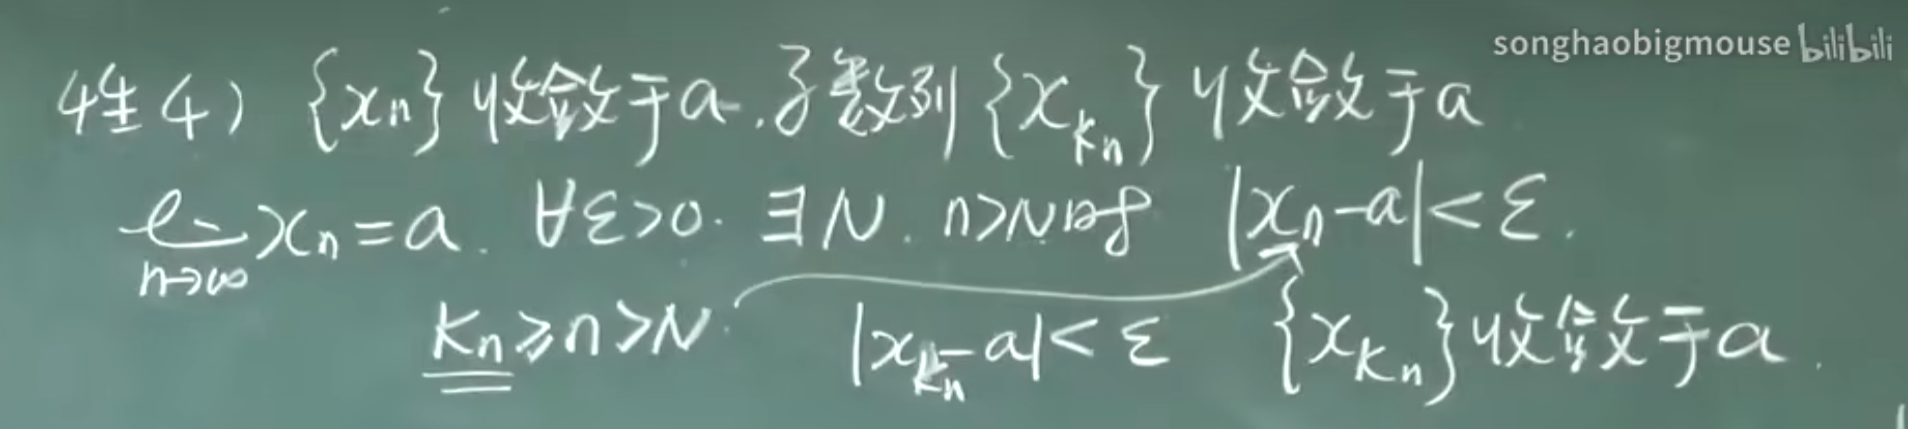 songhaobigmouse bilibili
性4) {xₙ}收敛于a.子数列{x_{kₙ}}收敛于a
lim_{n→∞} xₙ=a. ∀ε>0. ∃N. n>N时 |xₙ-a|<ε.
kₙ≥n>N. |x_{kₙ}-a|<ε {x_{kₙ}}收敛于a.